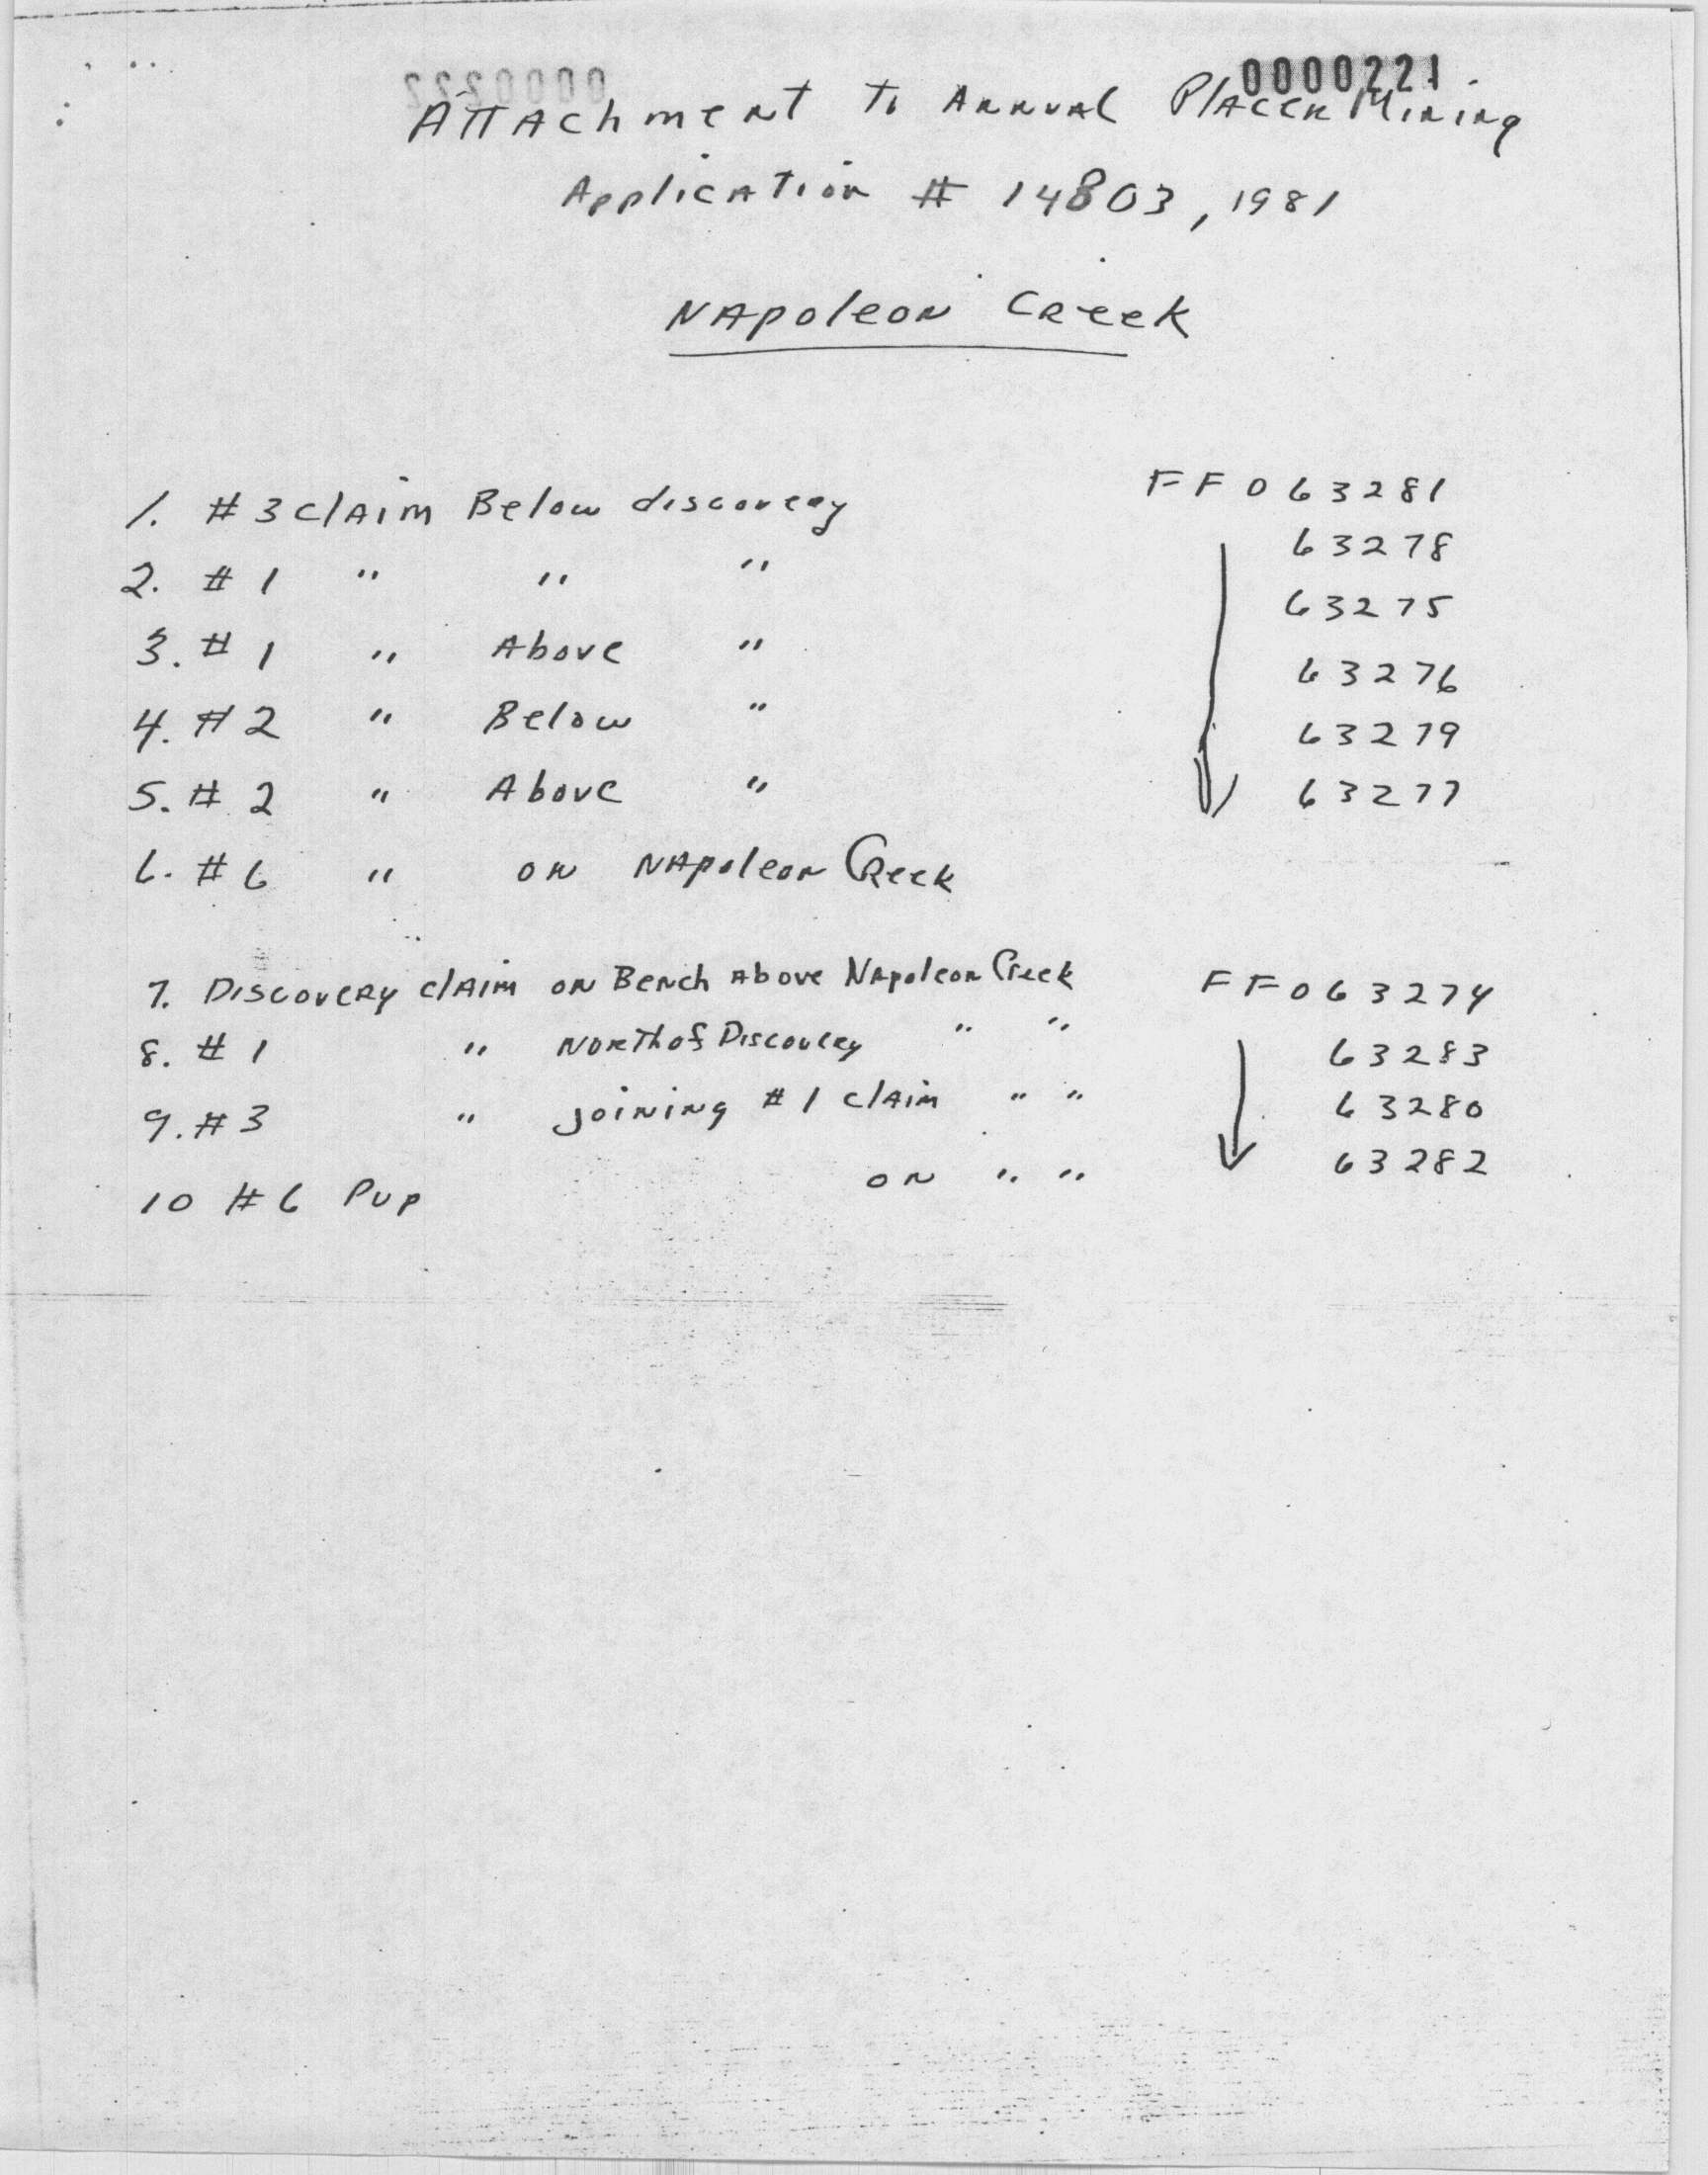 0000221
0000222
Attachment to Annual Placer Mining
Application # 14803, 1981
Napoleon Creek
1. #3 claim Below discovery FF063281
2. #1 " " " 63278
3. #1 " Above " 63275
4. #2 " Below " 63276
5. #2 " Above " 63279
6. #6 " on Napoleon Creek 63277
7. Discovery claim on Bench Above Napoleon Creek FF063274
8. #1 " North of Discovery " " 63283
9. #3 " joining #1 claim " " 63280
10 #6 Pup on " " 63282